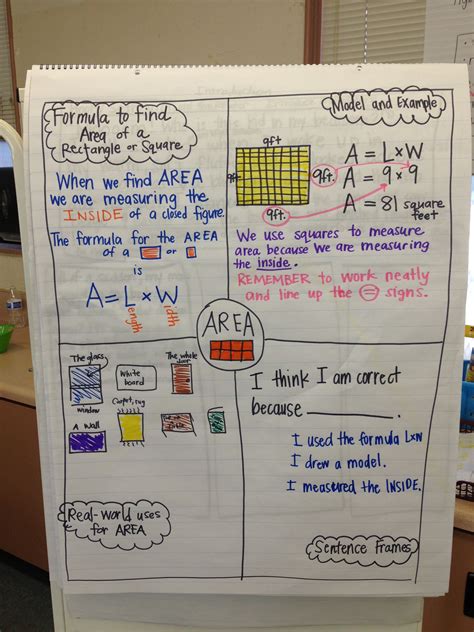 Formula to find
Area of a
Rectangle or Square
When we find AREA
we are measuring the
INSIDE of a closed figure.
The formula for the AREA
of a or
is
A=L×W
ength
idth
Model and Example
9ft
9ft.
9ft.
9ft.
A = L×W
A = 9 × 9
A = 81 square
feet
We use squares to measure
area because we are measuring
the inside.
REMEMBER to work neatly
and line up the = signs.
AREA
The glass
window
White
board
The whole
door
A Wall
Carpet, rug
Real-world uses
for AREA
I think I am correct
because
I used the formula LxW
I drew a model.
I measured the INSIDE.
Sentence Frames